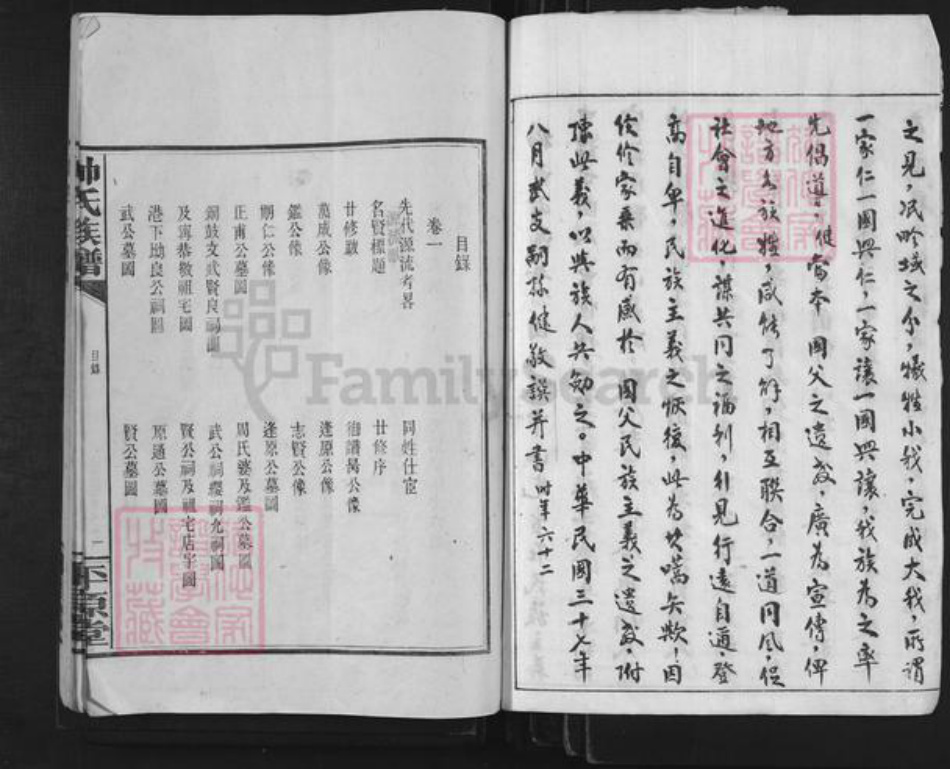 之見，泯畛域之分，犧牲小我，完成大我，所謂
一家仁一國興仁，一家讓一國興讓，我族為之率
先倡道，健當本 國父之遺教，廣為宣傳，俾
地方各族姓，咸能了解，相互聯合，一道同風，促
社會之進化，謀共同之福利，行見行遠自邇，登
高自卑，民族主義之恢復，此為坎嚆矢歟！因
修家乘而有感於 國父民族主義之遺教，附
陳此義，以與族人共勉之。中華民國三十七年
八月武支嗣孫健敬譔并書 時年六十二
目錄
卷一
先代源流考畧 同姓仕宦
名賢標題 廿修序
廿修跋 像
萬成公像 逢原公像
鑑公像 志賢公像
明仁公像 逢原公墓圖
正甫公墓圖 周氏婆及鑑公墓圖
銅鼓文武賢良祠圖 武公祠纓祠允祠圖
及寗恭數祖宅圖 賢公祠及祖宅店宇圖
港下坳良公祠圖 原通公墓圖
武公墓圖 賢公墓圖
氏族譜
目錄
一
原堂
FamilySearch